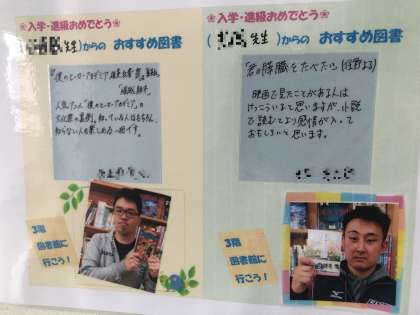 ❀入学・進級おめでとう❀
先生)からの おすすめ図書
『僕のヒーローアカデミア
人気アニメ"僕のヒーローアカデミア"の
知っている人はもちろん、
知らない人も楽しめる一冊です。
3階
図書館に
行こう！
❀入学・進級おめでとう❀
( 先生)からの おすすめ図書
『君の膵臓をたべたい』(住野よる)
映画で見たことがある人は
けっこういると思いますが、小説
で読むとより感情が入って
おもしろいと思います。
3階
図書館に
行こう！